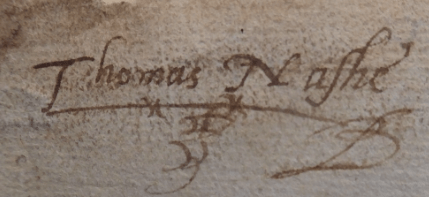 Thomas Nashe